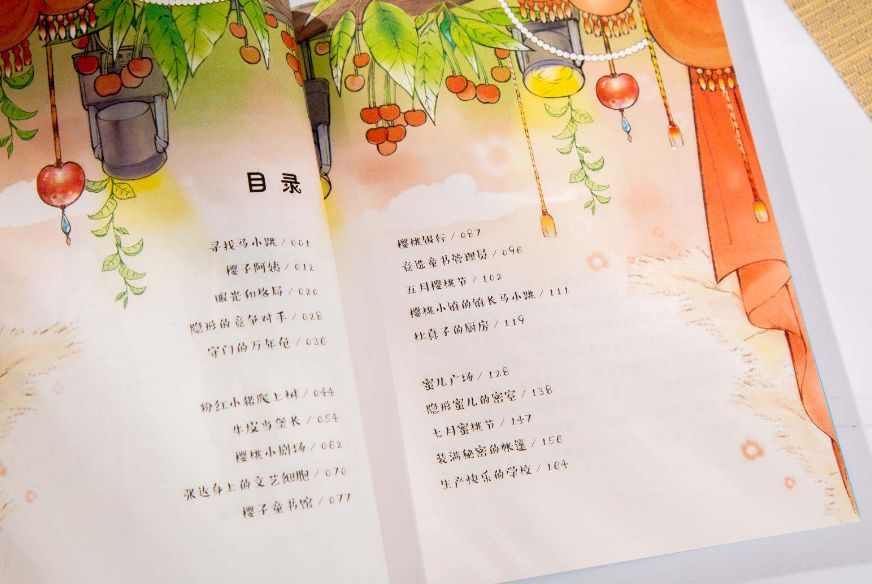 目录
寻找马小跳 / 001
樱子阿姨 / 012
眼光和格局 / 020
隐形的竞争对手 / 028
守门的万年龟 / 036
粉红小猪爬上树 / 044
牛皮当堡长 / 054
樱桃小剧场 / 062
张达身上的文艺细胞 / 070
樱子童书馆 / 077
樱桃银行 / 087
竞选童书管理员 / 096
五月樱桃节 / 102
樱桃小镇的镇长马小跳 / 111
杜真子的厨房 / 119
蜜儿广场 / 128
隐形蜜儿的密室 / 138
七月蜜桃节 / 147
装满秘密的帐篷 / 156
生产快乐的学校 / 164